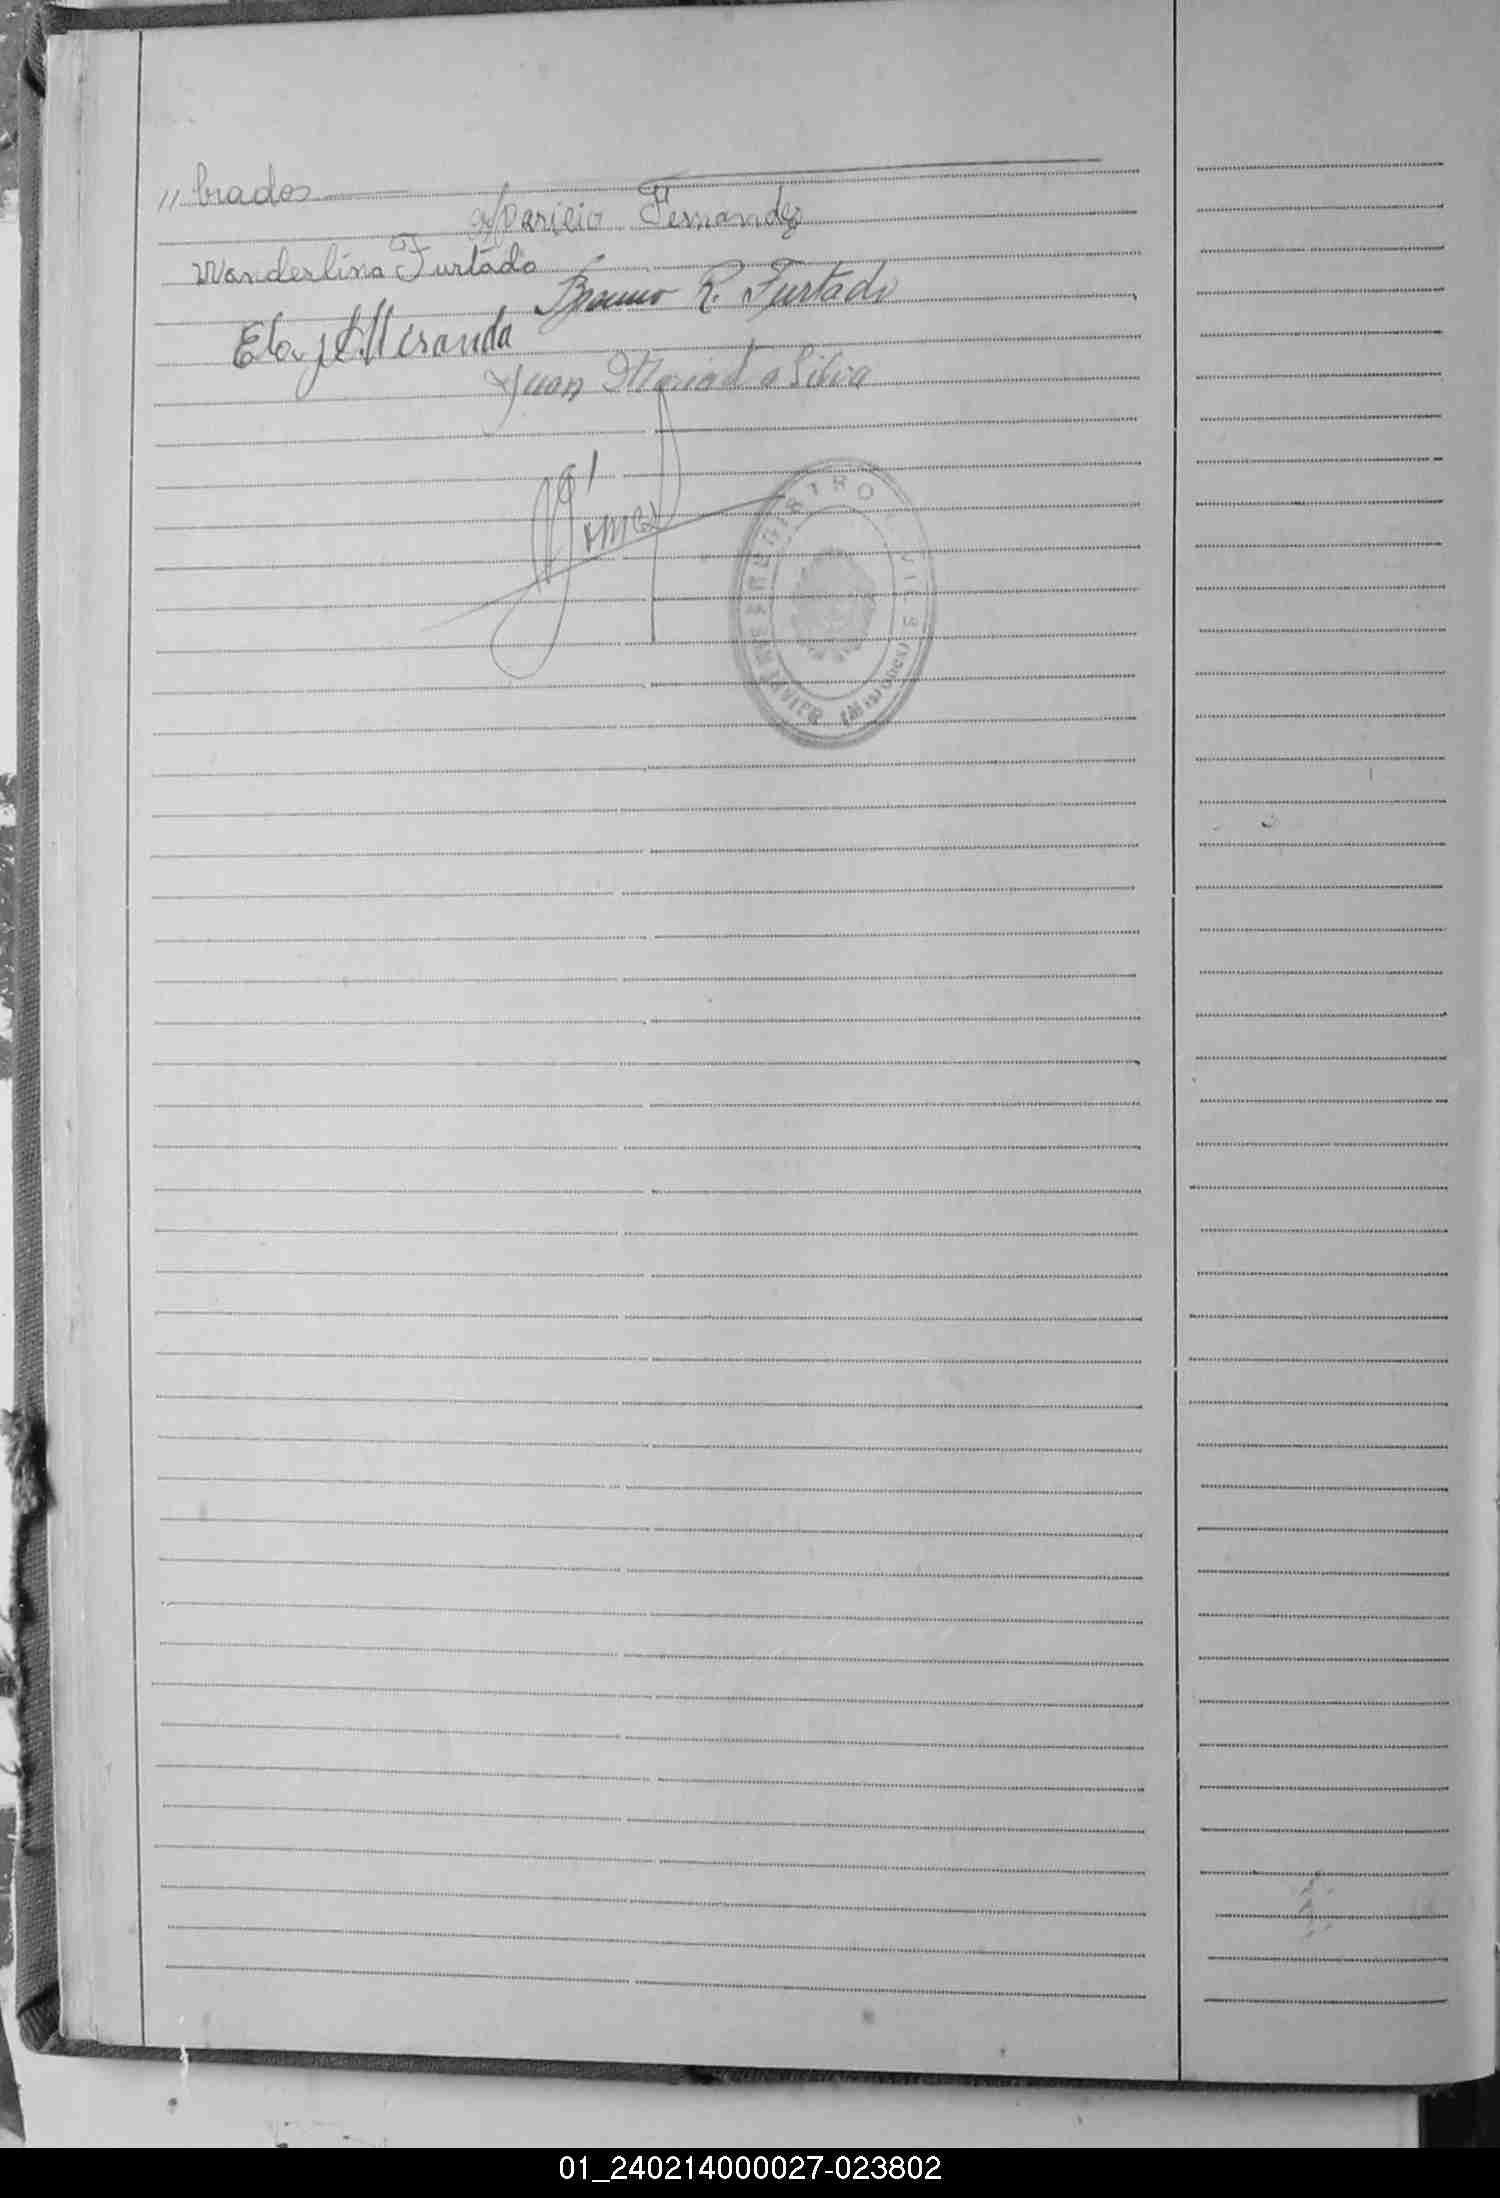 " brados
Aparicio Fernandez
Wanderlina Furtado
Bruno R. Furtado
Eloy Miranda
Juan Maria da Silva
Gómez
REGISTRO CIVIL
SAN JAVIER (Misiones)
01_240214000027-023802